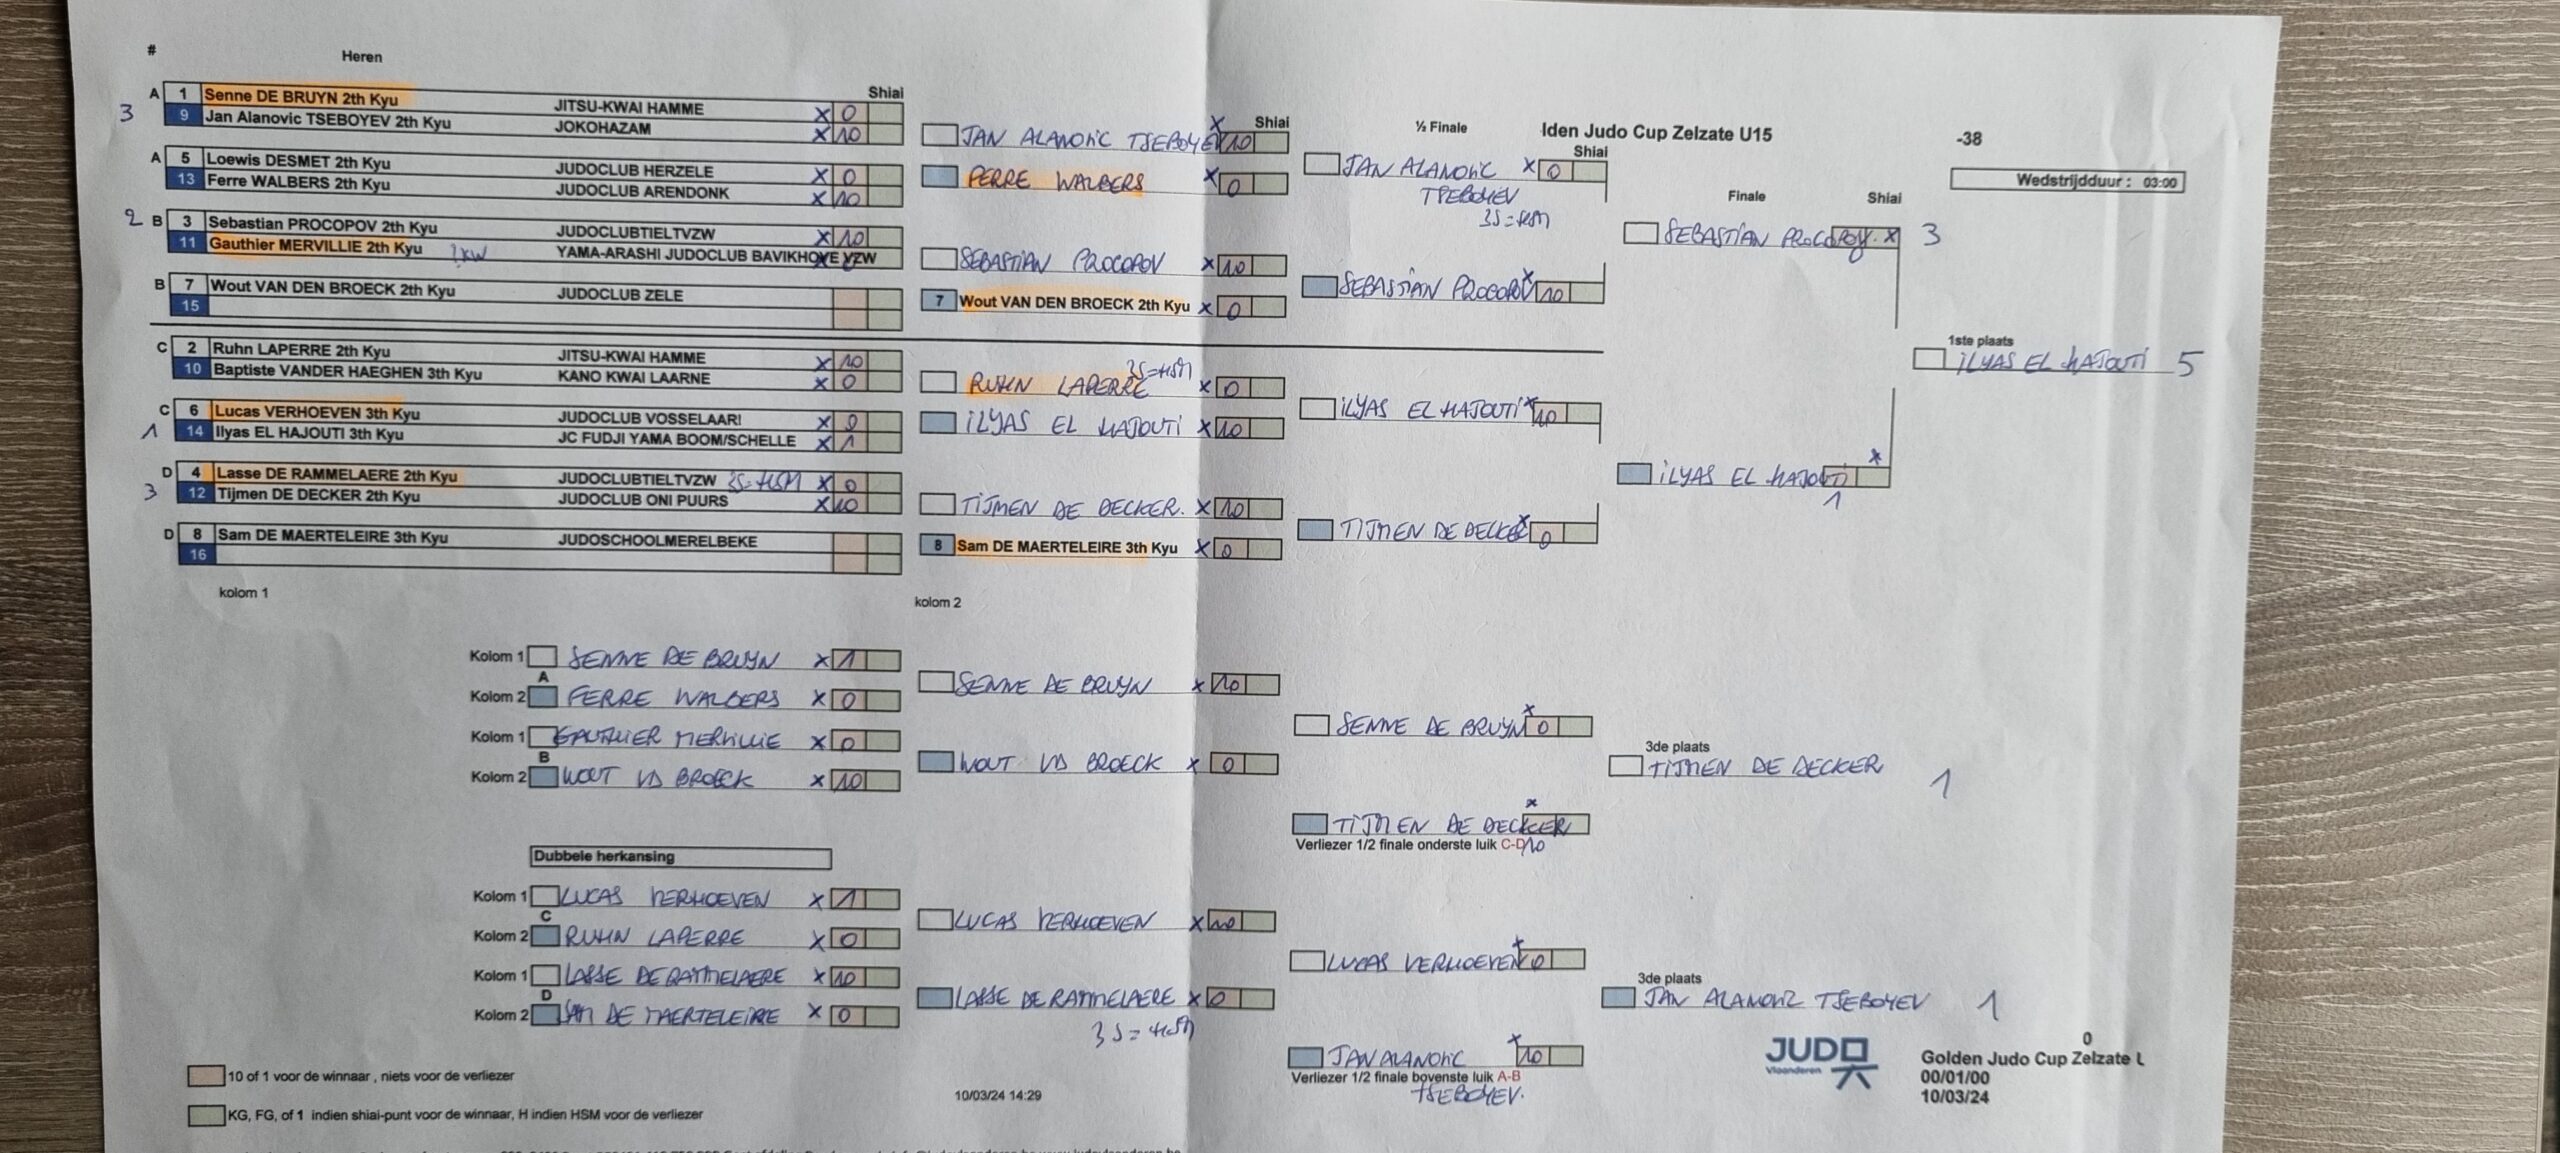 #
Heren
Shiai
A 1 Senne DE BRUYN 2th Kyu JITSU-KWAI HAMME X 0
3 9 Jan Alanovic TSEBOYEV 2th Kyu JOKOHAZAM X 10
A 5 Loewis DESMET 2th Kyu JUDOCLUB HERZELE X 0
13 Ferre WALBERS 2th Kyu JUDOCLUB ARENDONK X 10
2 B 3 Sebastian PROCOPOV 2th Kyu JUDOCLUBTIELTVZW X 10
11 Gauthier MERVILLIE 2th Kyu YAMA-ARASHI JUDOCLUB BAVIKHOVE VZW X 0
B 7 Wout VAN DEN BROECK 2th Kyu JUDOCLUB ZELE
15
C 2 Ruhn LAPERRE 2th Kyu JITSU-KWAI HAMME X 10
10 Baptiste VANDER HAEGHEN 3th Kyu KANO KWAI LAARNE X 0
C 6 Lucas VERHOEVEN 3th Kyu JUDOCLUB VOSSELAAR! X 0
1 14 Ilyas EL HAJOUTI 3th Kyu JC FUDJI YAMA BOOM/SCHELLE X 1
D 4 Lasse DE RAMMELAERE 2th Kyu JUDOCLUBTIELTVZW 3S=HSM X 0
3 12 Tijmen DE DECKER 2th Kyu JUDOCLUB ONI PUURS X 10
D 8 Sam DE MAERTELEIRE 3th Kyu JUDOSCHOOLMERELBEKE
16
kolom 1
Shiai
JAN ALANOVIC TSEBOYEV X 10
FERRE WALBERS X 0
SEBASTIAN PROCOPOV X 10
7 Wout VAN DEN BROECK 2th Kyu X 0
3S=HSM
RUHN LAPERRE X 0
ILYAS EL HAJOUTI X 10
TIJMEN DE DECKER. X 10
8 Sam DE MAERTELEIRE 3th Kyu X 0
kolom 2
½ Finale
Iden Judo Cup Zelzate U15
Shiai
JAN ALANOVIC X 0
TSEBOYEV
3S=HSM
SEBASTIAN PROCOPOV X 10
ILYAS EL HAJOUTI X 10
TIJMEN DE DECKER X 0
-38
Wedstrijdduur : 03:00
Finale
Shiai
SEBASTIAN PROCOPOV. X 3
ILYAS EL HAJOUTI X
1
1ste plaats
ILYAS EL HAJOUTI 5
Kolom 1 SENNE DE BRUYN X 1
A
Kolom 2 FERRE WALBERS X 0
Kolom 1 GAUTHIER MERVILLIE X 0
B
Kolom 2 WOUT VD BROECK X 10
SENNE DE BRUYN X 10
WOUT VD BROECK X 0
SENNE DE BRUYN X 0
TIJMEN DE DECKER X
Verliezer 1/2 finale onderste luik C-D 10
3de plaats
TIJMEN DE DECKER 1
Dubbele herkansing
Kolom 1 LUCAS VERHOEVEN X 1
C
Kolom 2 RUHN LAPERRE X 0
Kolom 1 LASSE DE RAMMELAERE X 10
D
Kolom 2 SAM DE MAERTELEIRE X 0
LUCAS VERHOEVEN X 10
LASSE DE RAMMELAERE X 0
3S=HSM
LUCAS VERHOEVEN X 0
JAN ALANOVIC X 10
Verliezer 1/2 finale bovenste luik A-B
TSEBOYEV.
3de plaats
JAN ALANOVIC TSEBOYEV 1
10 of 1 voor de winnaar , niets voor de verliezer
KG, FG, of 1 indien shiai-punt voor de winnaar, H indien HSM voor de verliezer
10/03/24 14:29
JUDO
Vlaanderen
0
Golden Judo Cup Zelzate U
00/01/00
10/03/24